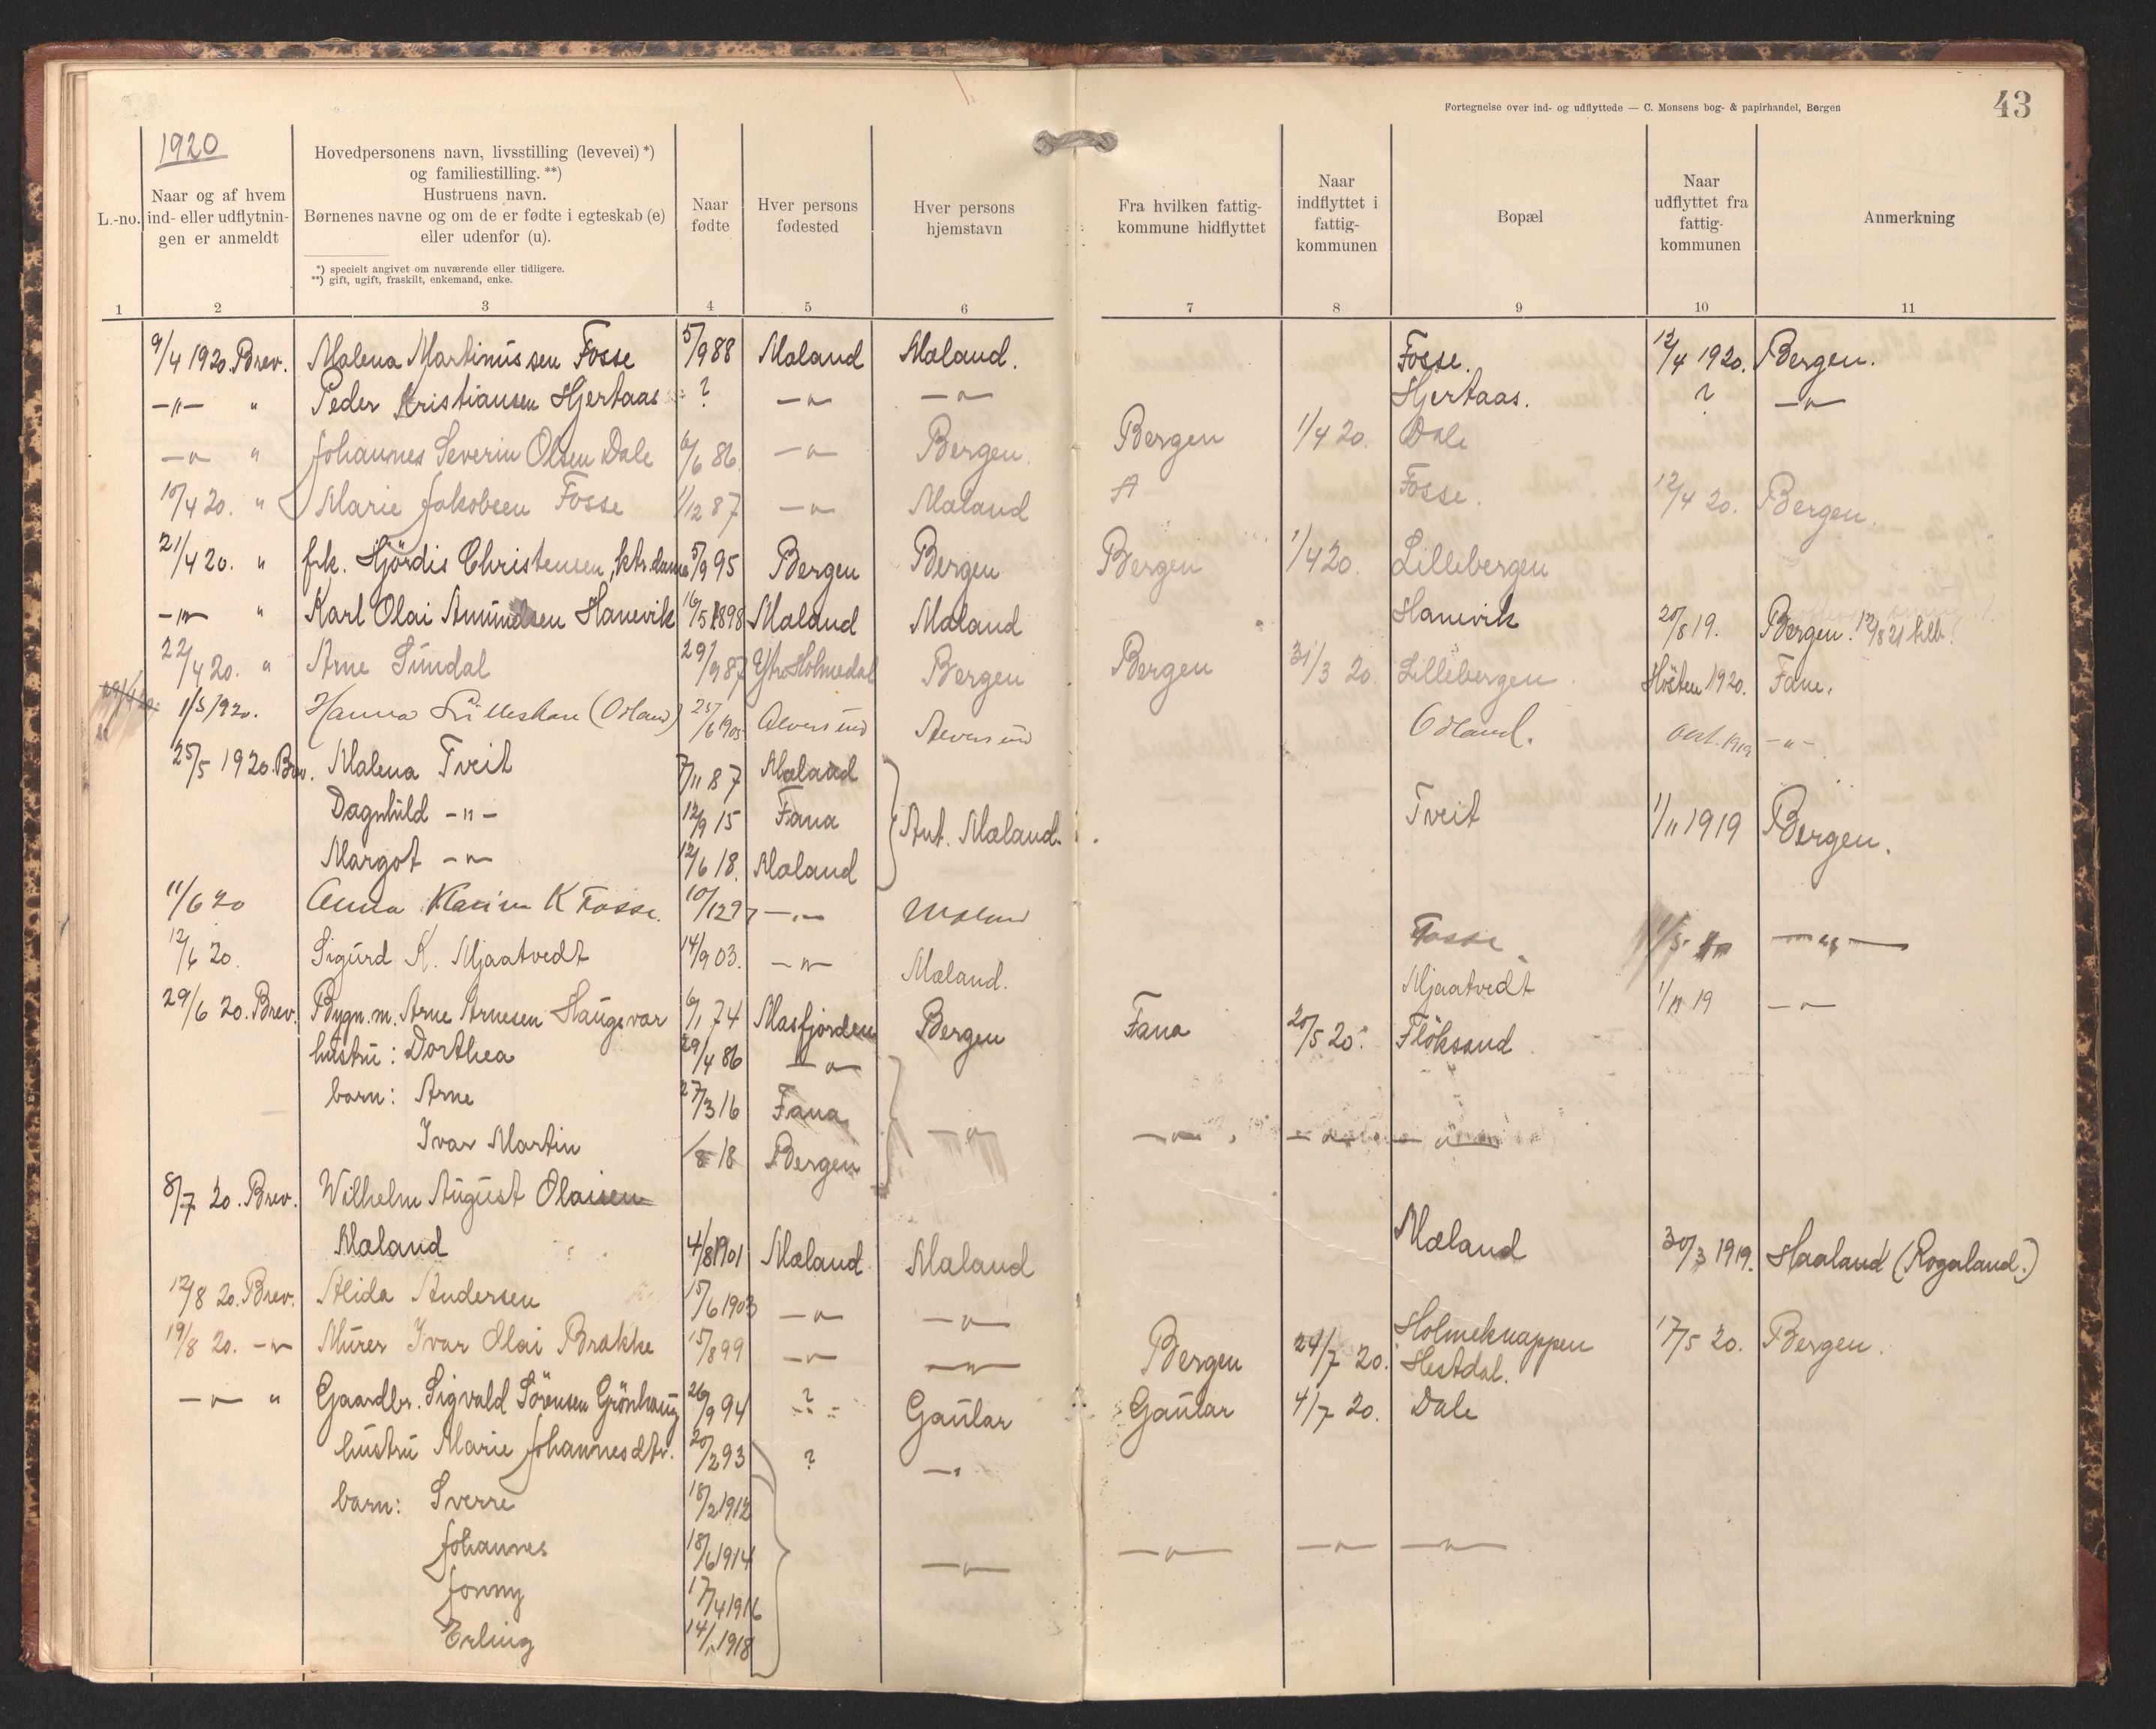 Fortegnelse over ind- og udflyttede — C. Monsens bog- & papirhandel, Bergen
43
1920
L.-no. Naar og af hvem ind- eller udflytnin- gen er anmeldt
Hovedpersonens navn, livsstilling (levevei) *) og familiestilling. **) Hustruens navn. Børnenes navne og om de er fødte i egteskab (e) eller udenfor (u).
*) specielt angivet om nuværende eller tidligere.
**) gift, ugift, fraskilt, enkemand, enke.
Naar fødte
Hver persons fødested
Hver persons hjemstavn
Fra hvilken fattig- kommune hidflyttet
Naar indflyttet i fattig- kommunen
Bopæl
Naar udflyttet fra fattig- kommunen
Anmerkning
1 2 3 4 5 6 7 8 9 10 11
9/4 1920. Brev. Malena Martinussen Fosse 5/9 88 Mæland Mæland. Fosse. 12/4 1920. Bergen.
—"— " Peder Kristiansen Hjertaas ? —"— —"— Hjertaas. ? —"—
—"— " Johannes Severin Olsen Dale 6/6 86. —"— Bergen. Bergen 1/4 20. Dale
10/4 20. " Marie Jakobsen Fosse 1/12 87 —"— Mæland Fosse. 12/4 20. Bergen.
21/4 20. " frk. Hjördis Christensen, ktr.dame 5/9 95 Bergen Bergen Bergen 1/4 20. Lillebergen
—"— " Karl Olai Amundsen Hanevik 16/5 1898 Mæland Mæland Hanevik 20/8 19. Bergen. 12/8 21 tilb.
22/4 20. " Arne Sundal 29/9 87 Ytre Holmedal Bergen Bergen 31/3 20. Lillebergen. Hösten 1920. Fane.
1/5 1920. Hanna Lilleskare (Odland) 25/6 1905 Alversund Alversund Odland. Okt. 1919 —"—
25/5 1920. Brev. Malena Tveit 7/11 87 Mæland
Dagnhild —"— 12/9 15 Fana Ant. Mæland. Tveit 1/11 1919 Bergen.
Margot —"— 12/6 18. Mæland
11/6 20 Anna Karina K Fosse. 10/12 97 —"— Mæland Fosse 1/5 —"—
12/6 20. Sigurd K. Mjaatvedt 14/9 03. —"— Mæland. Mjaatvedt 1/11 19 —"—
29/6 20. Brev. Bygn.m. Arne Arnesen Haugsvær 6/1 74 Masfjorden Bergen Fana 20/5 20. Flöksand
hustru: Dorthea 29/4 86 —"—
barn: Arne 27/3 16 Fana
Ivar Martin /8 18 Bergen —"— —"— —"— —"—
8/7 20. Brev. Wilhelm August Olaisen
Mæland 4/8 1901 Mæland Mæland Mæland 30/3 1919. Haaland (Rogaland.)
12/8 20. Brev. Alida Andersen 15/6 1903 —"— —"— Holmeknappen 17/5 20. Bergen.
19/8 20. —"— Murer Ivar Olai Brække 15/8 99 —"— —"— Bergen 29/7 20. Hestdal.
—"— " Gaardbr. Sigvald Sörensen Grönhaug 26/9 94 ? Gaular Gaular 4/7 20. Dale
hustru Marie Johannesdtr. 20/2 93 ? —"—
barn: Sverre 18/2 1912
Johannes 18/6 1914 —"— —"— —"— —"—
Jonny 17/4 1916
Erling 14/11 1918